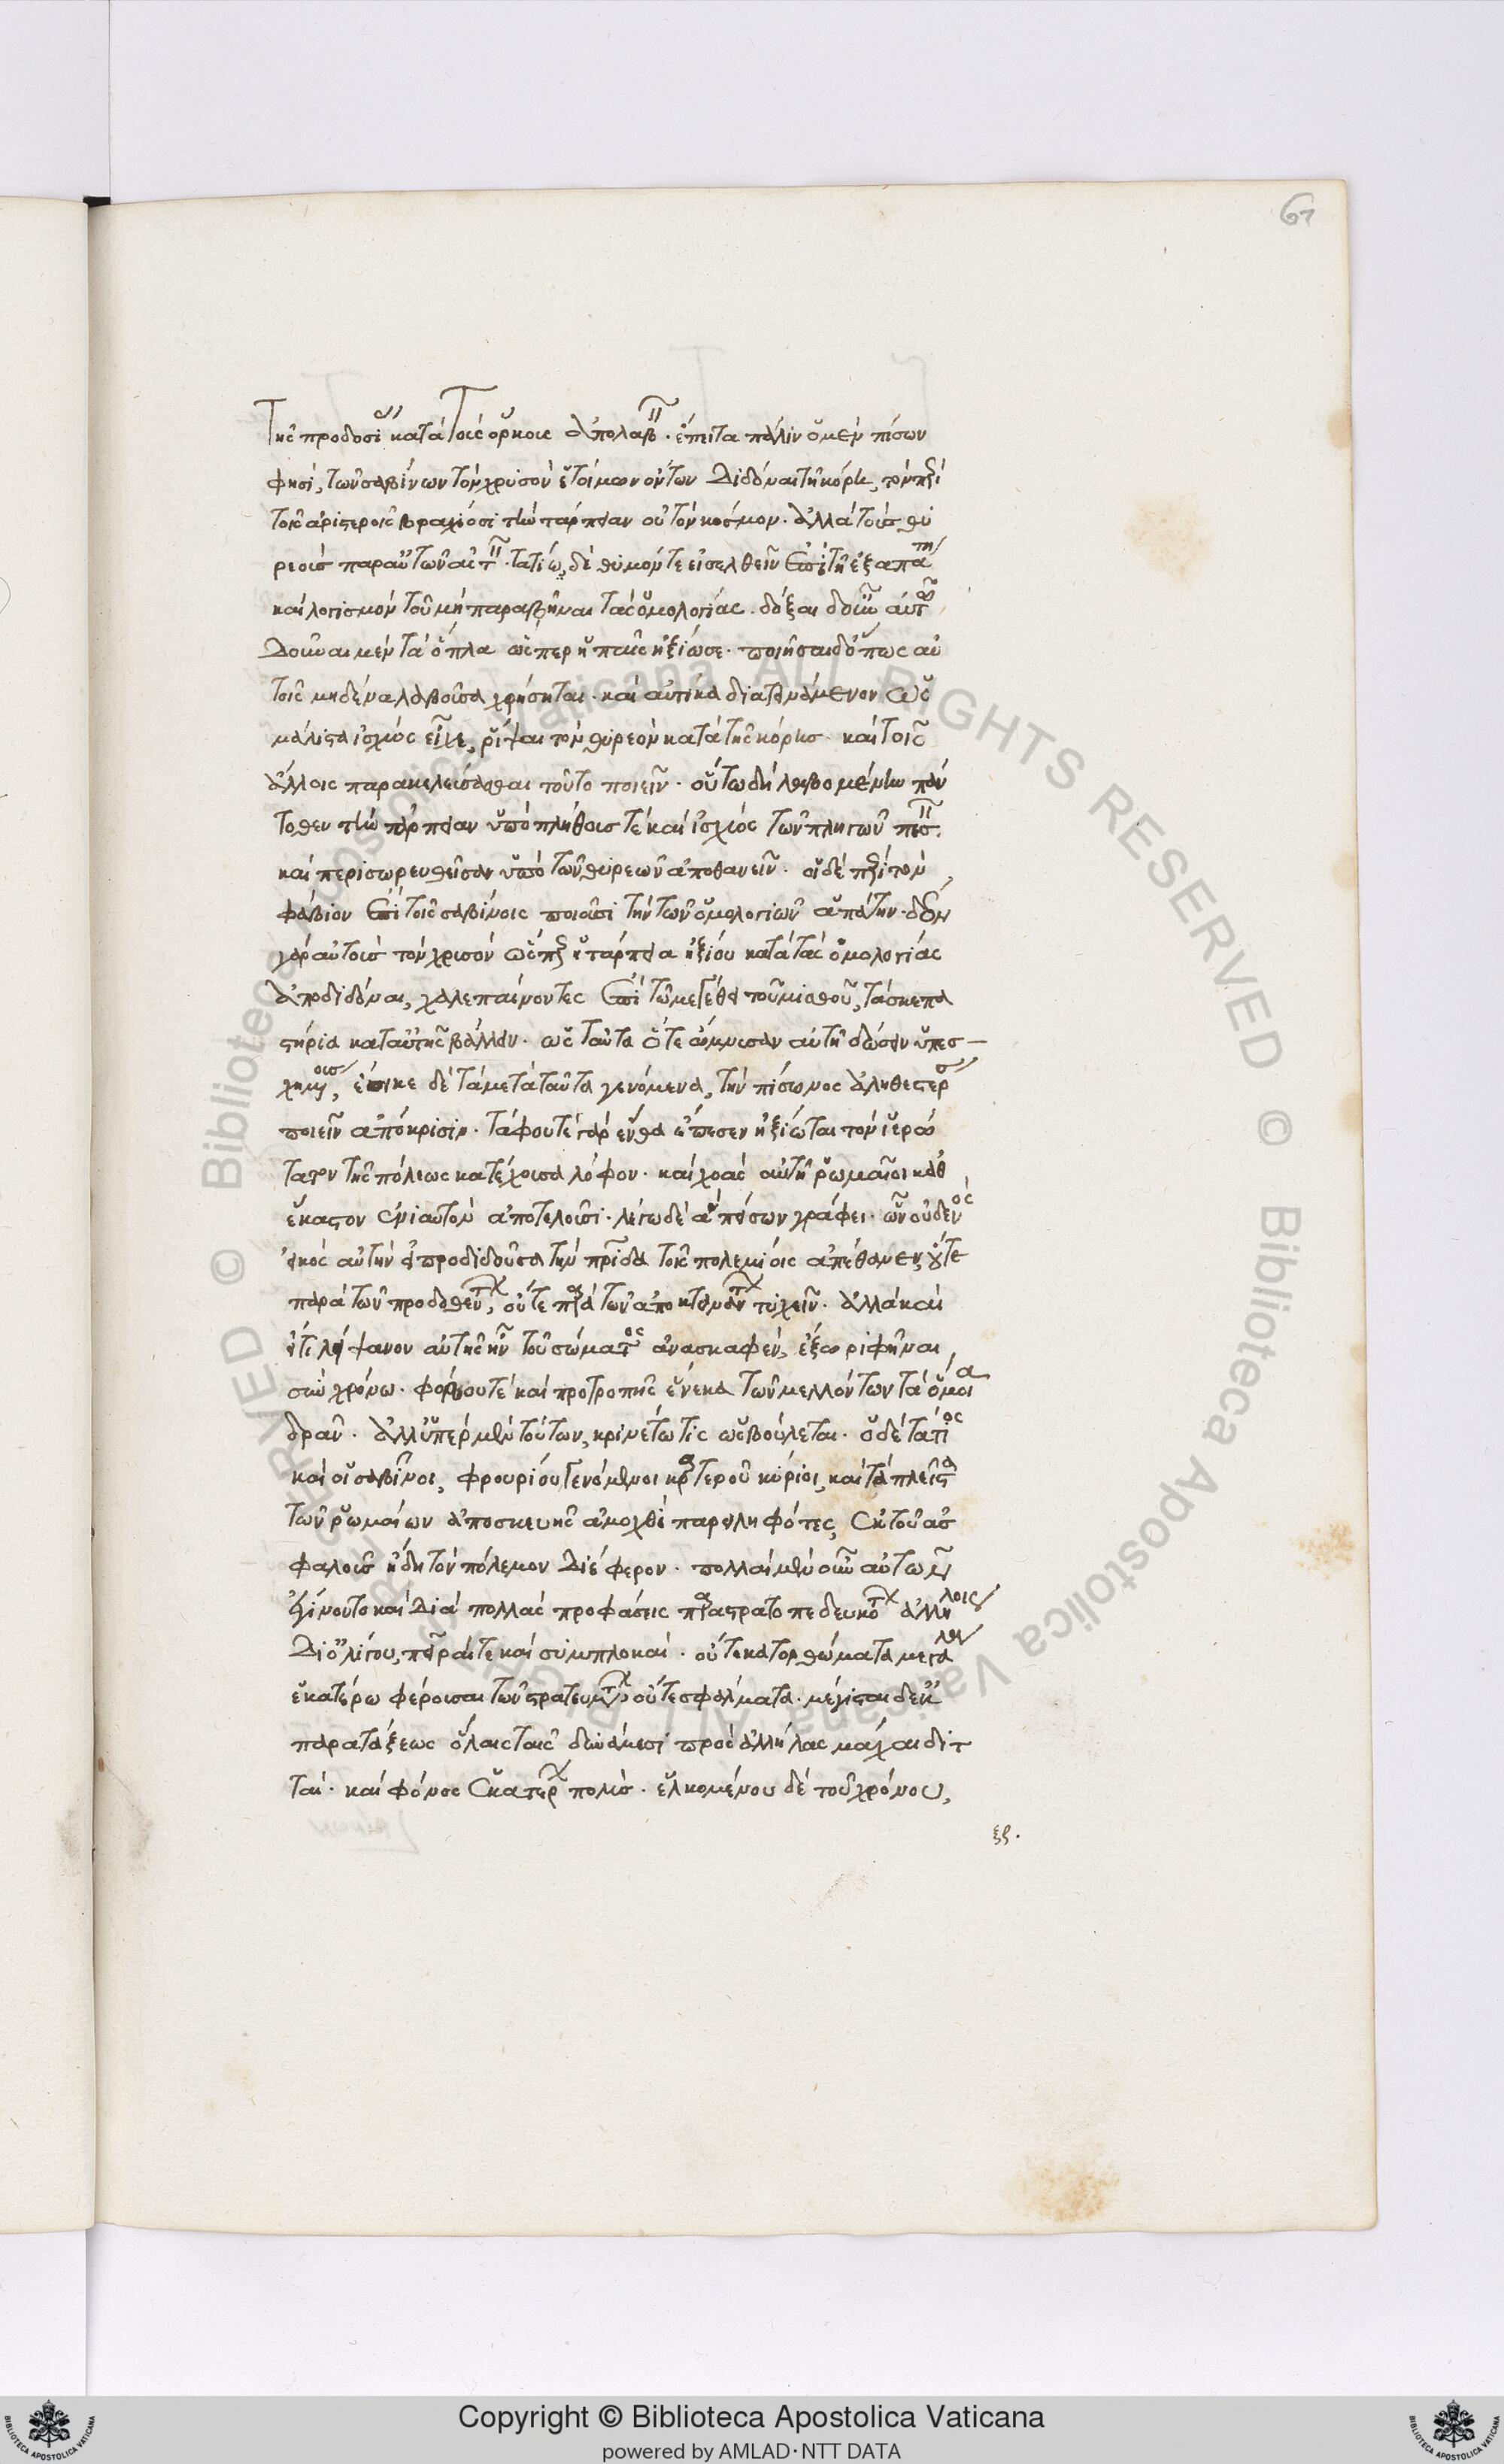 61
Τῆς προδοσίας κατὰ τοὺς ὅρκους ἀπολαβεῖν. ἔπειτα πάλιν ὁ μὲν πίσων
φησί, τῶν σαβίνων τὸν χρυσὸν ἑτοίμων ὄντων διδόναι τῇ κόρῃ, τὸν περὶ
τοῖς ἀριστεροῖς βραχίοσι τὴν τάρπειαν οὐ τὸν κόσμον. ἀλλὰ τοὺς θυ
ρεοὺς παρ' αὐτῶν αἰτεῖν. τατίω δὲ θυμόν τε εἰσελθεῖν ἐπὶ τῇ ἐξαπάτῃ
καὶ λογισμὸν τοῦ μὴ παραβῆναι τὰς ὁμολογίας. δόξαι δ' οὖν αὐτῶ
δοῦναι μὲν τὰ ὅπλα ὥσπερ ἡ παῖς ἠξίωσε. ποιῆσαι δ' ὅπως αὐ
τοῖς μηδὲν λαβοῦσα χρήσηται. καὶ αὐτίκα διατεινάμενον ὡς
μάλιστα ἰσχύος εἶχε, ῥίψαι τὸν θυρεὸν κατὰ τῆς κόρης. καὶ τοῖς
ἄλλοις παρακελεύσασθαι τοῦτο ποιεῖν. οὕτω δὴ βαλλομένην πάν
τοθεν τὴν τάρπειαν ὑπὸ πλήθους τε καὶ ἰσχύος τῶν πληγῶν πεσεῖν.
καὶ περισωρευθεῖσαν ὑπὸ τῶν θυρεῶν ἀποθανεῖν. οἱ δὲ περὶ τὸν
φάβιον ἐπὶ τοῖς σαβίνοις ποιοῦσι τὴν τῶν ὁμολογιῶν ἀπάτην. δέον
γὰρ αὐτοὺς τὸν χρυσὸν ὥσπερ ἡ τάρπεια ἠξίου κατὰ τὰς ὁμολογίας
ἀποδιδόναι, χαλεπαίνοντες ἐπὶ τῶ μεγέθει τοῦ μισθοῦ, τὰ σκεπα
στήρια κατ' αὐτῆς βάλλειν. ὡς ταῦτα ὅτε ὤμνυσαν αὐτῇ δώσειν ὑπεσ
χημένους, ἔοικε δὲ τὰ μετὰ ταῦτα γενόμενα, τὴν πίσωνος ἀληθεστέραν
ποιεῖν ἀπόκρισιν. τάφου τε γὰρ ἔνθα ἔπεσεν ἠξίωται τὸν ἱερώ
τατον τῆς πόλεως κατέχουσα λόφον. καὶ χοὰς αὐτῇ ῥωμαῖοι καθ'
ἕκαστον ἐνιαυτὸν ἀποτελοῦσι. λέγω δὲ ἃ πίσων γράφει. ὧν οὐδενὸς
εἰκὸς αὐτὴν εἰ προδιδοῦσα τὴν πατρίδα τοῖς πολεμίοις ἀπέθανεν, οὔτε
παρὰ τῶν προδοθέντων, οὔτε παρὰ τῶν ἀποκτεινάντων τυχεῖν. ἀλλὰ καὶ
εἴ τι λείψανον αὐτῆς ἦν τοῦ σώματος ἀνασκαφέν, ἔξω ριφῆναι
σὺν χρόνω. φόβου τε καὶ προτροπῆς ἕνεκα τῶν μελλόντων τὰ ὅμοια
δρᾶν. ἀλλ' ὑπὲρ μὲν τούτων, κρινέτω τις ὡς βούλεται. ὁ δὲ τάτιος
καὶ οἱ σαβῖνοι, φρουρίου γενόμενοι καρτεροῦ κύριοι, καὶ τὰ πλεῖστα
τῶν ῥωμαίων ἀποσκευῆς ἀμοχθὶ παρειληφότες, ἐκ τοῦ ἀσ
φαλοῦς ἤδη τὸν πόλεμον διέφερον. πολλαὶ μὲν οὖν αὐτῶν
ἐγίνοντο καὶ διὰ πολλὰς προφάσεις παραστρατοπεδευκότων ἀλλήλοις
δι' ὀλίγου, πεῖραί τε καὶ συμπλοκαί. οὔτε κατορθώματα μεγάλα
ἑκατέρω φέρουσαι τῶν στρατευμάτων οὔτε σφάλματα. μέγισται δ' ἐκ
παρατάξεως ὅλαις ταῖς δυνάμεσι πρὸς ἀλλήλας μάχαι διτ
ταί. καὶ φόνος ἑκατέρων πολύς. ἑλκομένου δὲ τοῦ χρόνου,
ξς.
© Biblioteca Apostolica Vaticana ALL RIGHTS RESERVED © Biblioteca Apostolica Vaticana ALL RIGHTS RESERVED
Copyright © Biblioteca Apostolica Vaticana
powered by AMLAD·NTT DATA
BIBLIOTECA APOSTOLICA VATICANA
BIBLIOTECA APOSTOLICA VATICANA